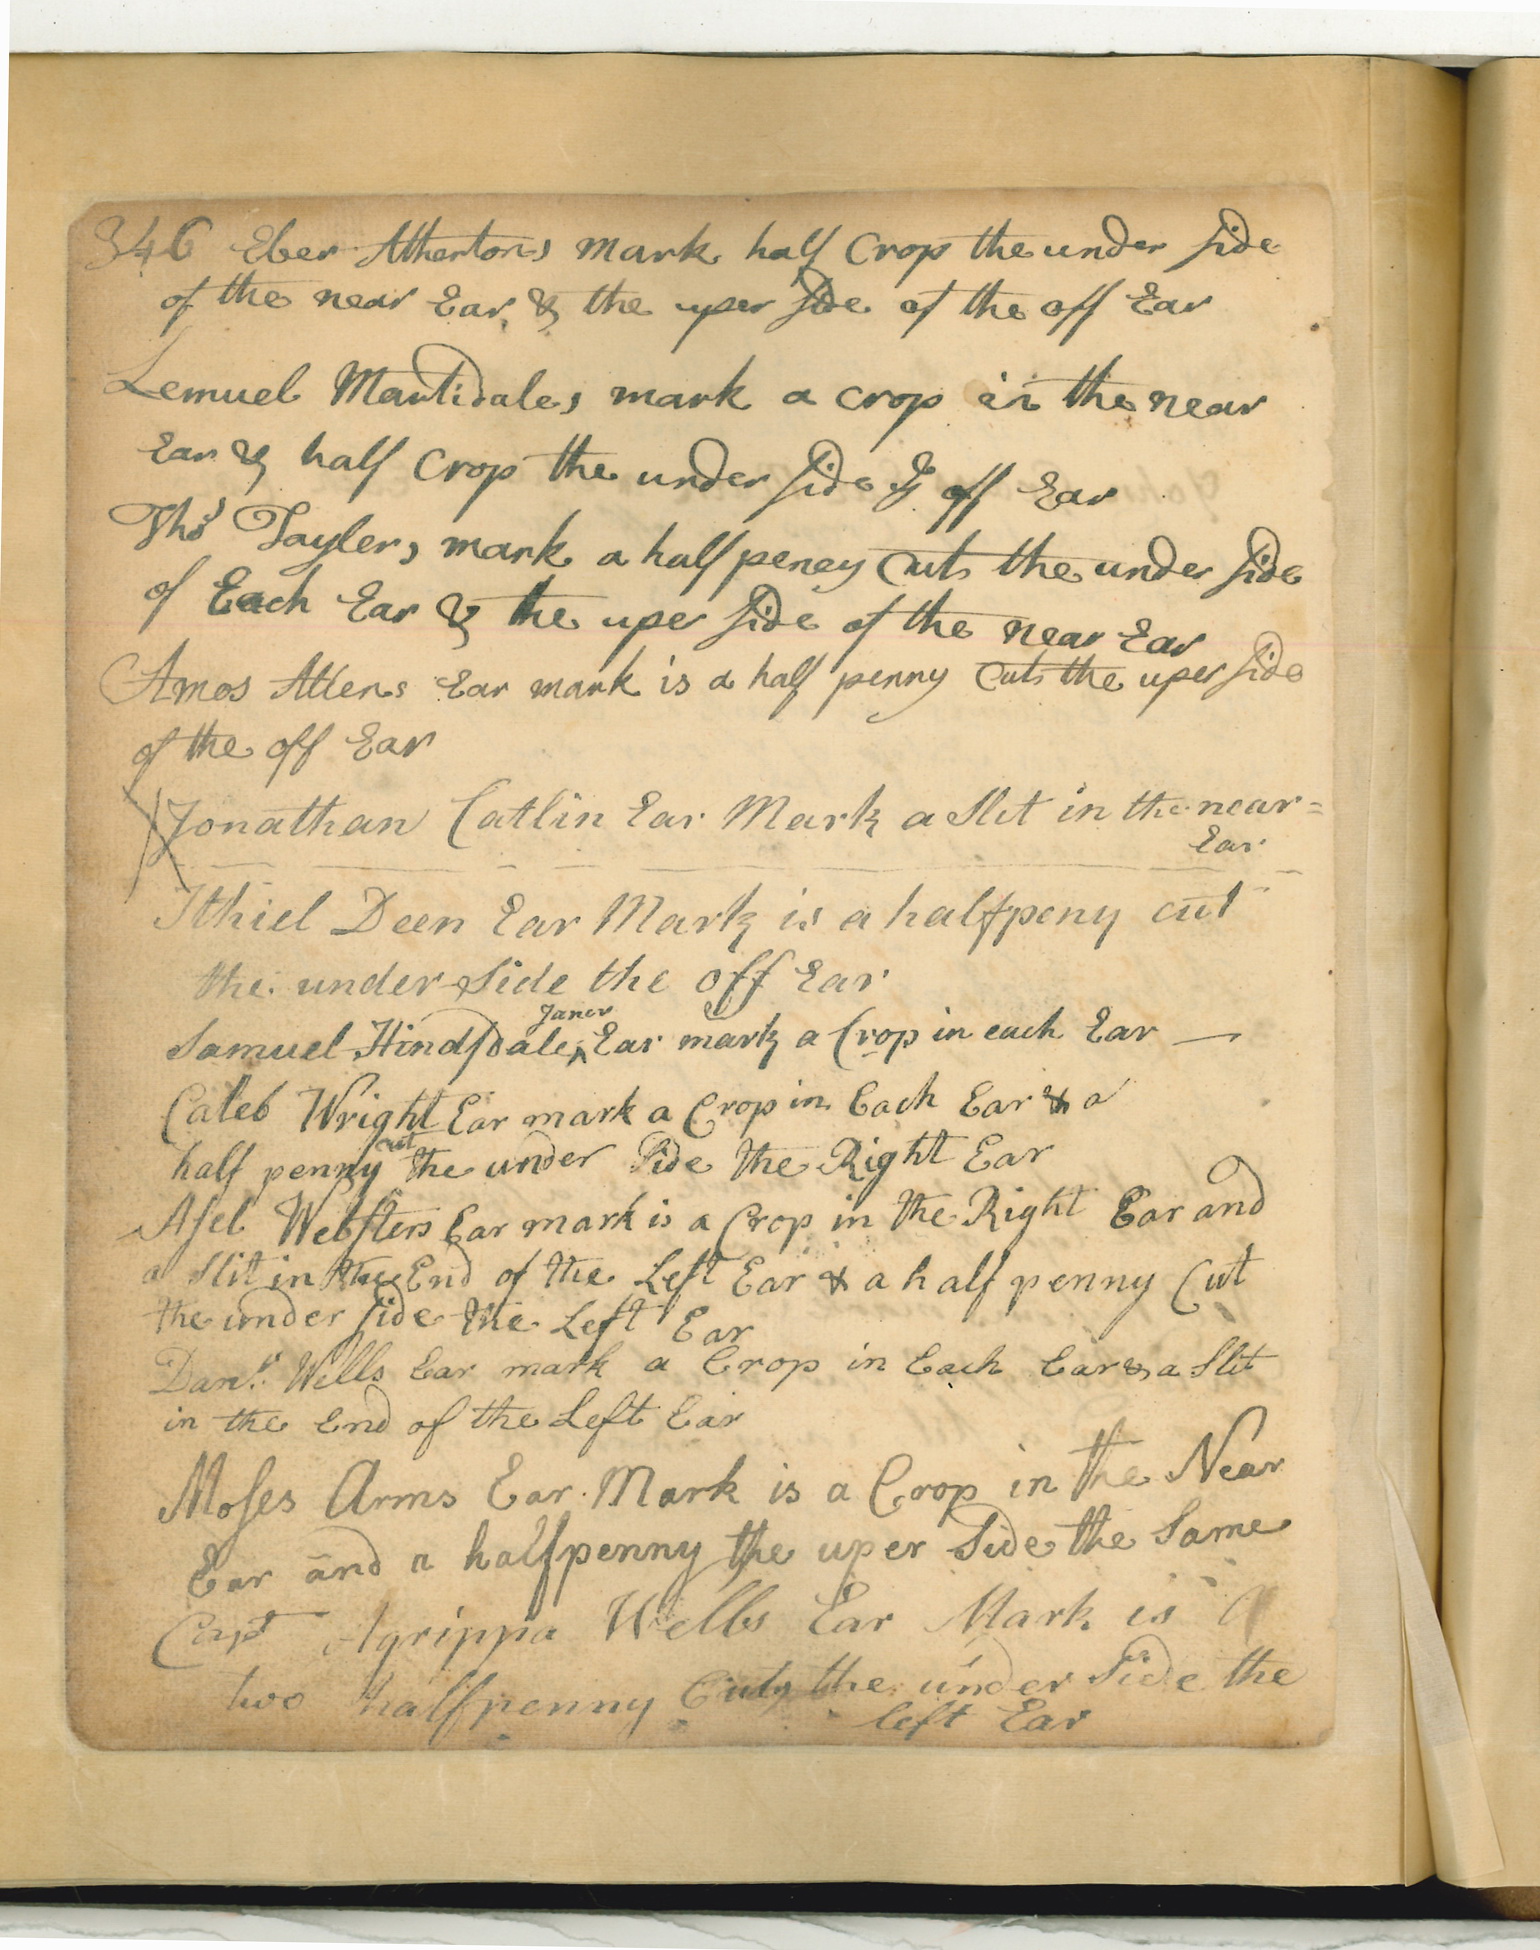 346 Eber Athertons mark half Crop the under side
of the near Ear & the uper side of the off Ear
Lemuel Martidales mark a crop in the near
Ear & half Crop the under side ye off Ear
Thos Taylers mark a half peney Cut the under side
of Each Ear & the uper side of the near Ear
Amos Allens Ear mark is a half penny Cut the uper side
of the off Ear
Jonathan Catlin Ear Mark a Slit in the near=
Ear
Ithiel Deen Ear Mark is a halfpeny cut
the under Side the off Ear
Junor
Samuel Hindsdale ^ Ear mark a Crop in each Ear —
Caleb Wright Ear mark a Crop in Each Ear & a
cut
half penny the under Side the Right Ear
Asel Websters Ear mark is a Crop in the Right Ear and
a Slit in the End of the Left Ear & a half penny Cut
the under side the Left Ear
Danll Wells Ear mark a Crop in Each Ear & a Slit
in the End of the Left Ear
Moses Arms Ear Mark is a Crop in the Near
Ear and a halfpenny the uper Side the Same
Capt Agrippa Wells Ear Mark is
two halfpenny Cuts the under Side the
left Ear